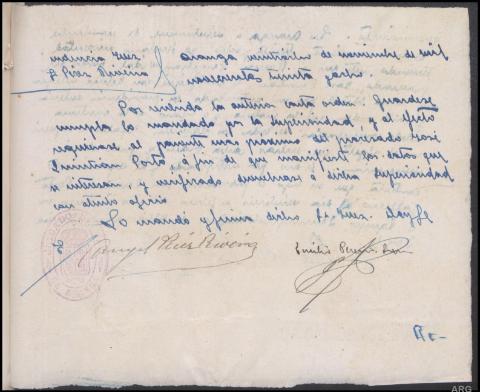 Providencia Juez
S. Ríos Riveira
Aranga veinticuatro de noviembre de mil
novecientos treinta y ocho.
Por recibida la anterior carta orden. Guárdese
cumpla lo mandado por la Superioridad, y al efecto
requiérase al pariente mas próximo del procesado José
Quintián Porto, á fin de que manifieste los datos que
se interesan, y verificado devuélvase á dicha Superioridad
con atento oficio
Lo mandó y firma dicho Sr. Juez. Doy fe
Angel Ríos Riveira
Emilio
Rt-
ARG